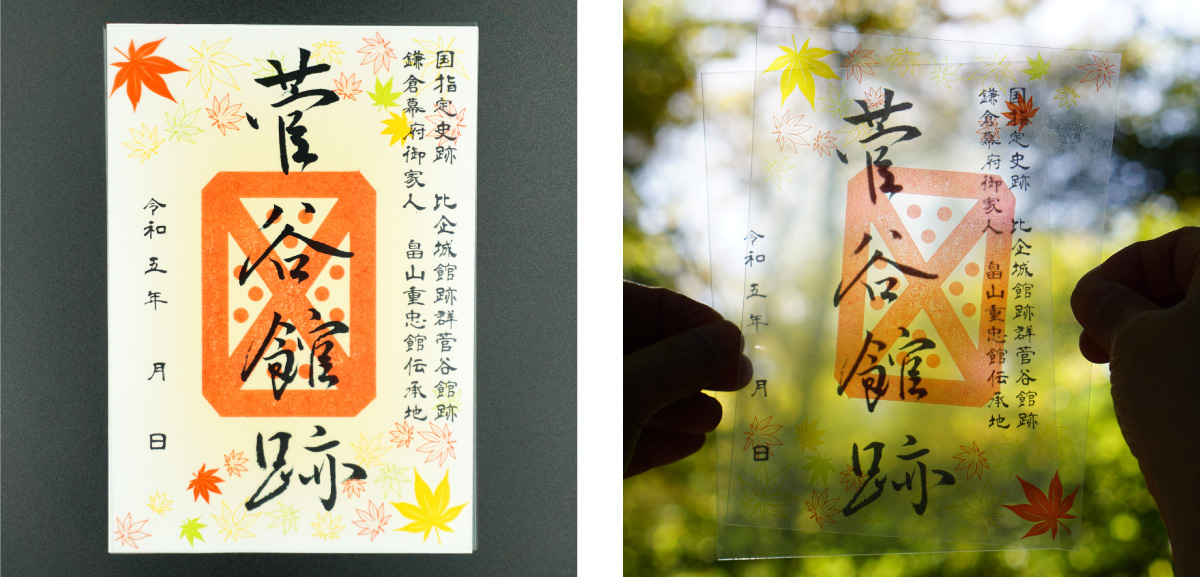 国指定史跡 比企城館跡群菅谷館跡
鎌倉幕府御家人 畠山重忠館伝承地
菅谷館跡
令和五年 月 日
国指定史跡 比企城館跡群菅谷館跡
鎌倉幕府御家人 畠山重忠館伝承地
菅谷館跡
令和五年 月 日